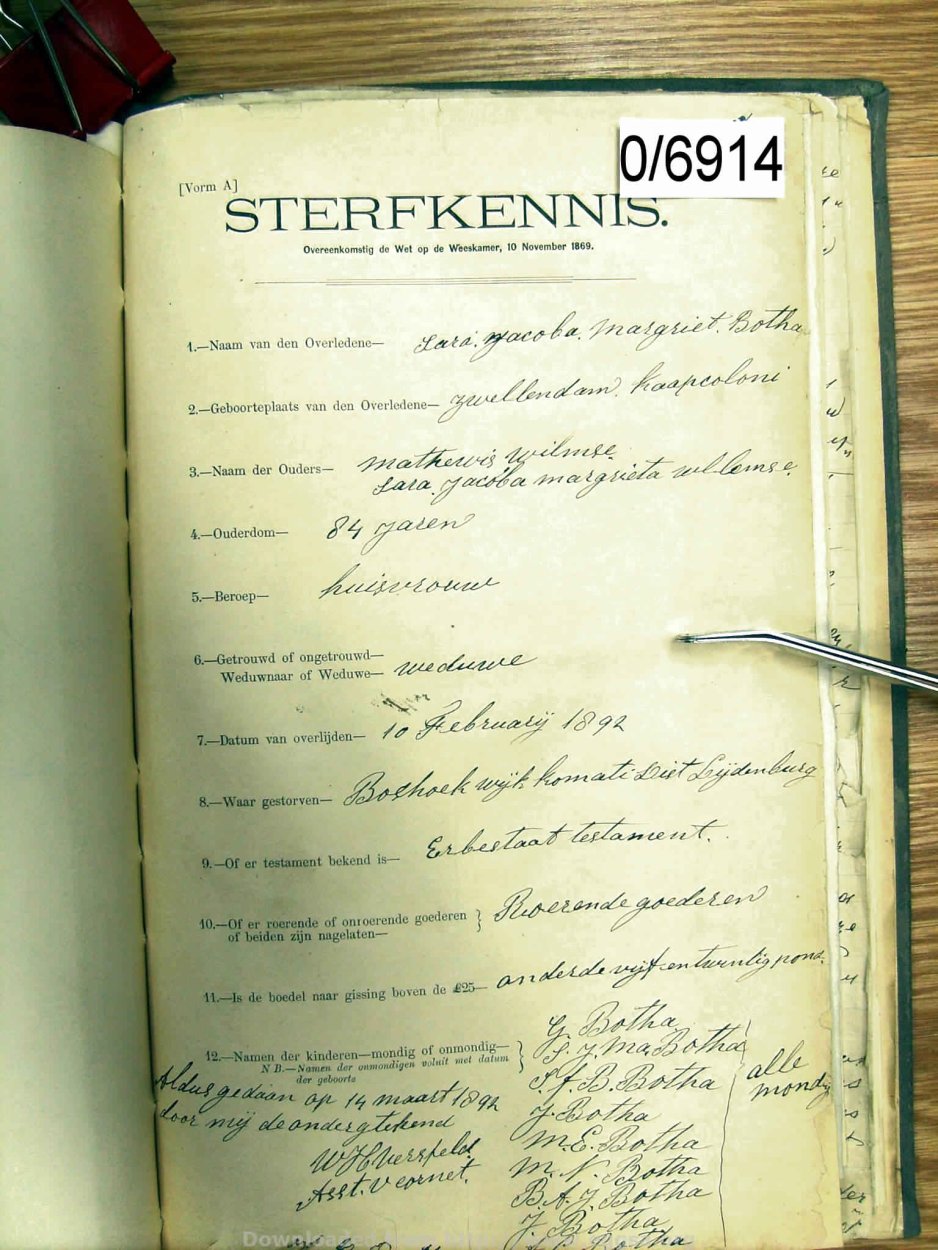 0/6914
[Vorm A]
STERFKENNIS.
Overeenkomstig de Wet op de Weeskamer, 10 November 1869.
1.—Naam van den Overledene— Sara Jacoba. Margriet. Botha
2.—Geboorteplaats van den Overledene— zwellendam. Kaapcoloni
3.—Naam der Ouders— mathewis wilmse
Sara. Jacoba margrieta willemse.
4.—Ouderdom— 84 jaren
5.—Beroep— huisvrouw
6.—Getrouwd of ongetrouwd—
Weduwnaar of Weduwe— weduwe
7.—Datum van overlijden— 10 February 1892
8.—Waar gestorven— Boshoek wijk komati Lijdenburg
9.—Of er testament bekend is— Er bestaat testament.
10.—Of er roerende of onroerende goederen
of beiden zijn nagelaten— } Roerende goederen
11.—Is de boedel naar gissing boven de £25— onder de vijf en twintig pond.
G. Botha
12.—Namen der kinderen—mondig of onmondig— } S. J. Ma. Botha
N B.—Namen der onmondigen voluit met datum
der geboorte
S. f. B. Botha
alle
mondig
Aldus gedaan op 14 maart 1892
J. Botha
door mij de ondergtekend
M. E. Botha
W H Versfeld
M. N. Botha
Asst. V cornet.
B. A. J. Botha
J. Botha
Botha
Downloaded